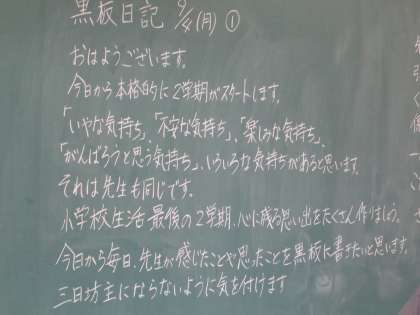 黒板日記 9/4(月) ①
おはようございます。
今日から本格的に2学期がスタートします。
「いやな気持ち」、「不安な気持ち」、「楽しみな気持ち」、
「がんばろうと思う気持ち」、いろいろな気持ちがあると思います。
それは先生も同じです。
小学校生活最後の2学期、心に残る思い出をたくさん作りましょう。
今日から毎日、先生が感じたことや思ったことを黒板に書きたいと思います。
三日坊主にならないように気を付けます